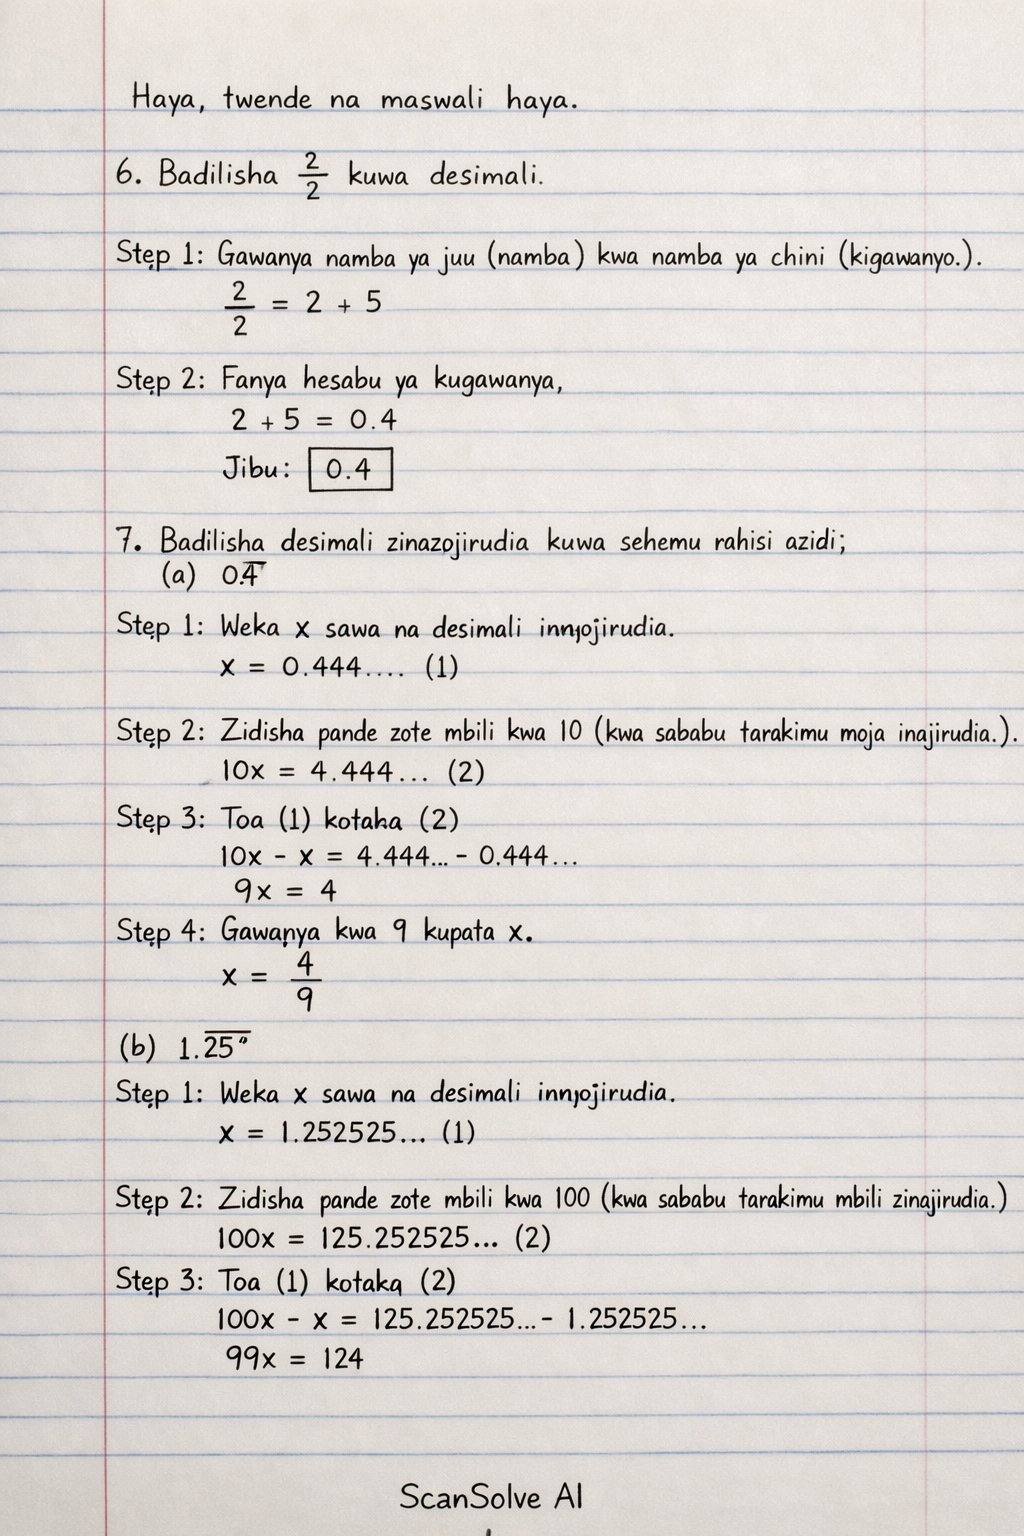 Haya, twende na maswali haya.
6. Badilisha 2/2 kuwa desimali.
Step 1: Gawanya namba ya juu (namba) kwa namba ya chini (kigawanyo.).
2/2 = 2 + 5
Step 2: Fanya hesabu ya kugawanya,
2 + 5 = 0.4
Jibu: 0.4
7. Badilisha desimali zinazojirudia kuwa sehemu rahisi azidi;
(a) 0.4̅
Step 1: Weka x sawa na desimali innyojirudia.
x = 0.444.... (1)
Step 2: Zidisha pande zote mbili kwa 10 (kwa sababu tarakimu moja inajirudia.).
10x = 4.444... (2)
Step 3: Toa (1) kotaha (2)
10x - x = 4.444... - 0.444...
9x = 4
Step 4: Gawanya kwa 9 kupata x.
x = 4/9
(b) 1.2̅5̅
Step 1: Weka x sawa na desimali innyojirudia.
x = 1.252525... (1)
Step 2: Zidisha pande zote mbili kwa 100 (kwa sababu tarakimu mbili zinajirudia.)
100x = 125.252525... (2)
Step 3: Toa (1) kotaka (2)
100x - x = 125.252525... - 1.252525...
99x = 124
ScanSolve AI